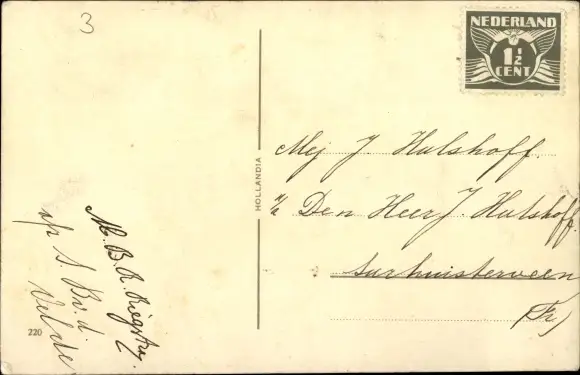 3
NEDERLAND
1½
CENT
HOLLANDIA
Mej J Hulshoff.
Den Heer J. Hulshoff
Surhuisterveen
(Fr)
M. B. R.
a/p S. B v. d.
Velde
220